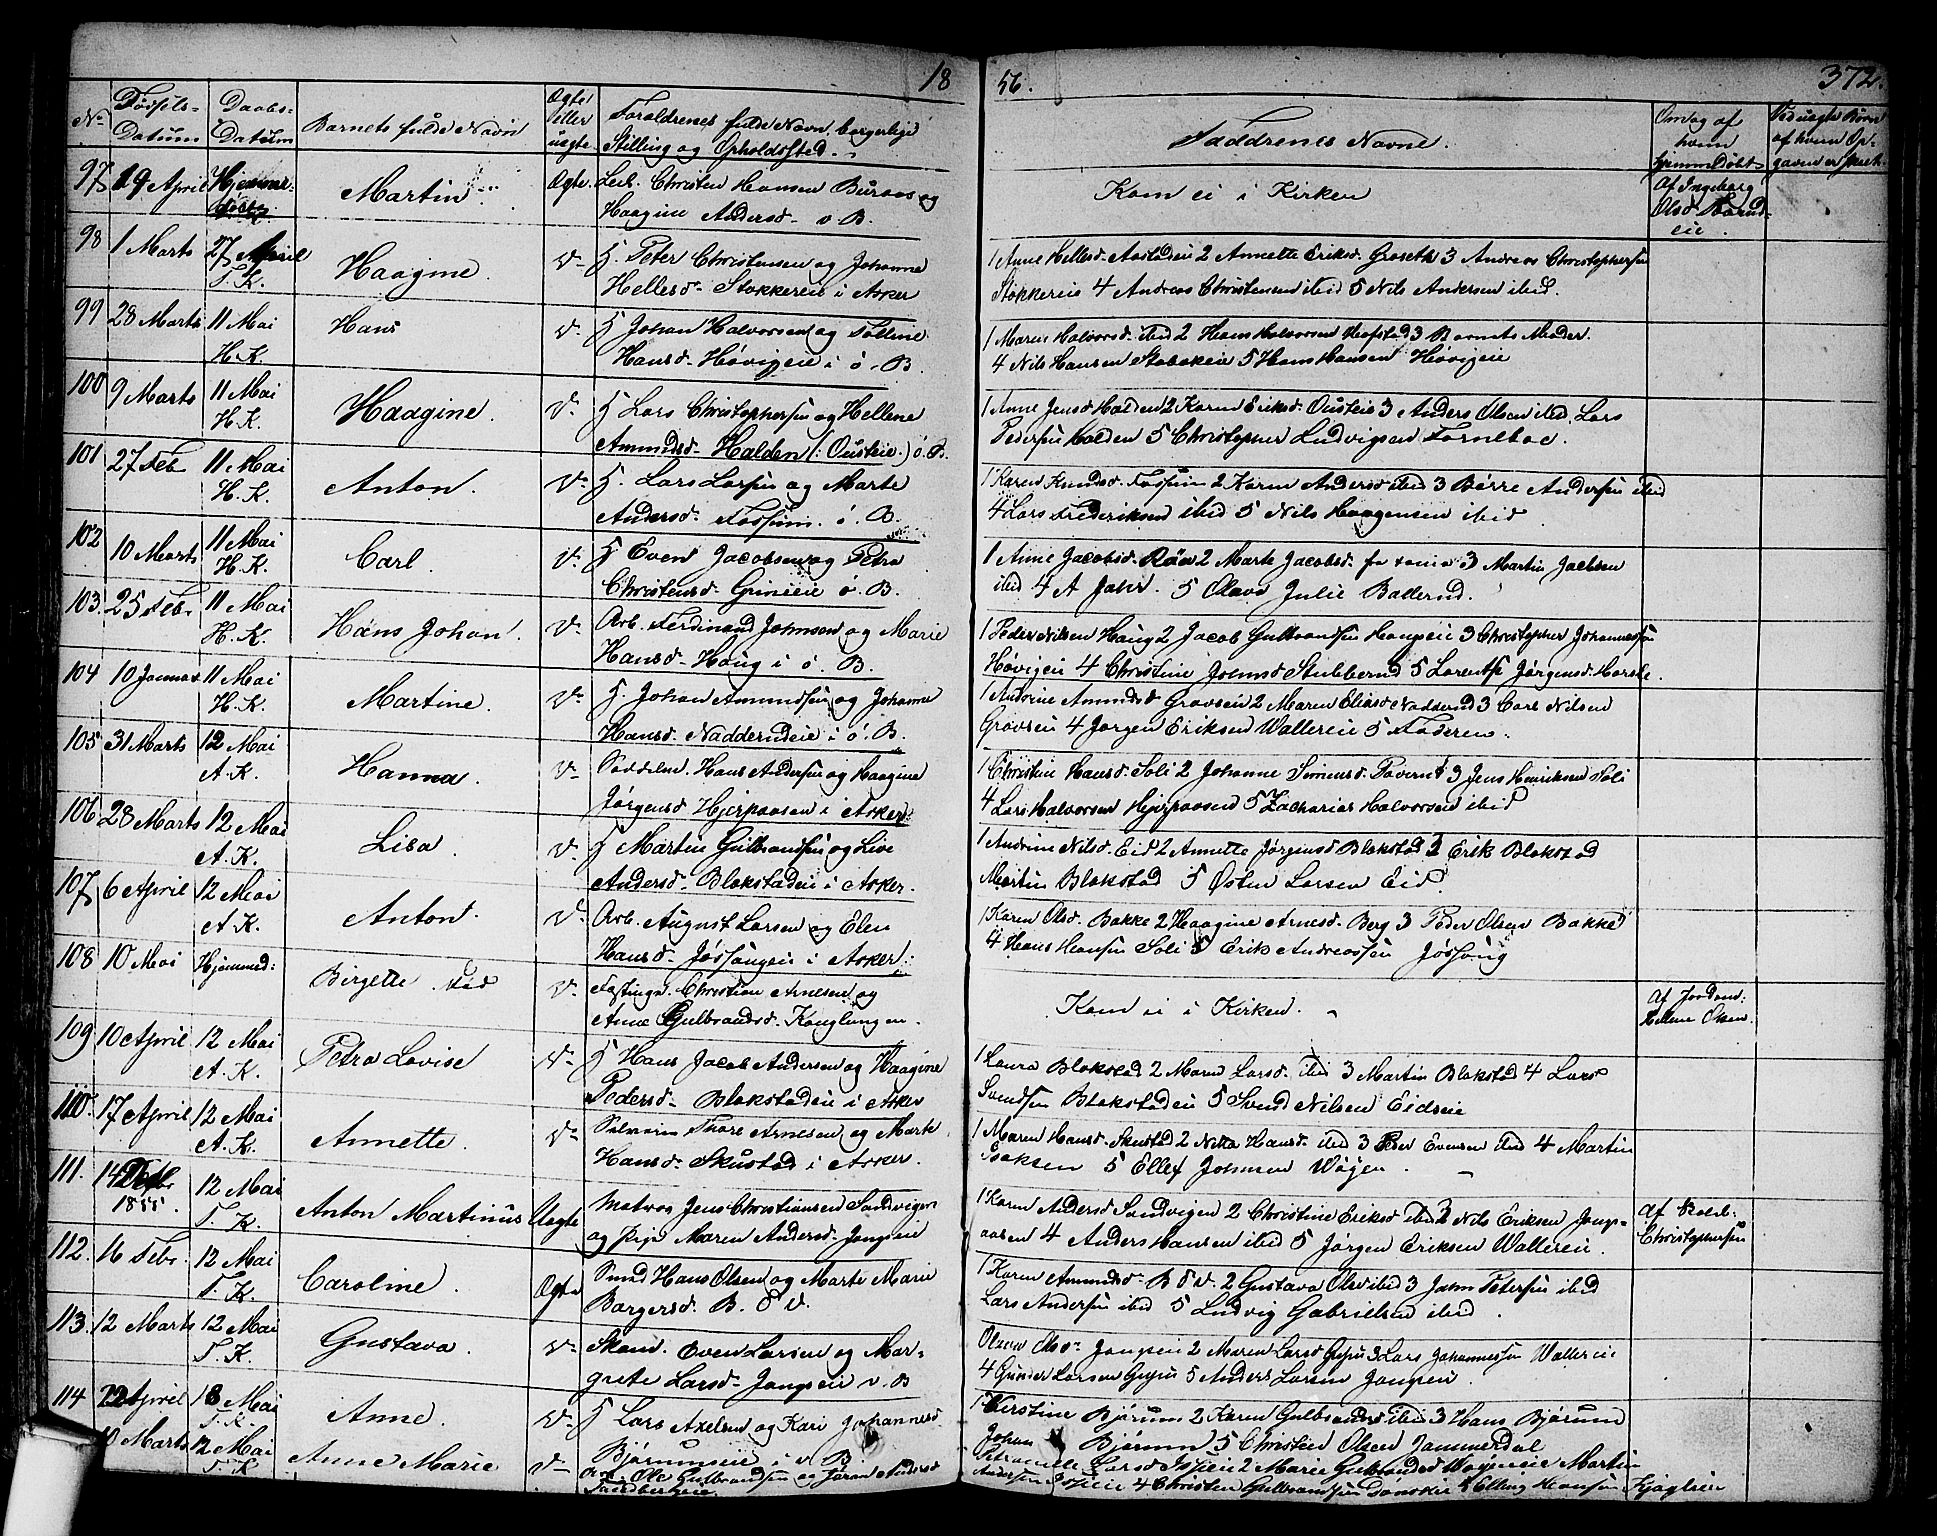 18
56.
372.
No
Fødsels-
Datum
Daabs-
Datum
Barnets fulde Navn
Ægte
eller
uægte.
Forældrenes fulde Navn, borgerlige
Stilling og Opholdssted.
Faddrenes Navne.
Omdag af
hvem
hjemmedøbt
Ved uægte Børn
af hvem Op-
gaven er skeet
97 19 April Hjemme-
Martin Ægte. Christen Hansen Buraas og
Haagine Andersd. v B.
Kom ei i Kirken
Af Ingeborg
Olsd.
eie.
98 1 Marts 27 April
T. K.
Haagine. Peter Christensen og Johanne
Hellesd. Stokkereie i Asker
1 Anne Hellesd. 2 Annette Eriksd. Groseth 3 Andreas Christophersen
Stokkereie 4 Andreas Christensen ibid 5 Nils Andersen ibid.
99 28 Marts 11 Mai
H. K.
Hans Johan Halvorsen og
Hansd. Høvigeie i ø. B.
1 Maren Halvorsd. ibid 2 Hans Halvorsen 3 Barnets Moder.
4 Nils Hansen Stabekeie 5 Hans Hansen Høvigeie
100 9 Marts 11 Mai
H. K.
Haagine. Lars Christophersen og Hellene
Amundsd. Halden (: Ousteie.) ø. B.
1 Anne Jensd. Halden 2 Karen Eriksd. Ousteie 3 Anders Olsen ibid. Lars
Pedersen Halden 5 Christopher Ludvigsen Forneboe.
101 27 Feb 11 Mai
H. K.
Anton. Lars Larsen og Marte
Andersd. Fossum. ø. B.
1 Karen Knudsd. Fossum 2 Karen Andersd ibid 3 Børre Andersen ibid
4 Lars Frederiksen ibid 5 Nils Haagensen ibid
102 10 Marts 11 Mai
H. K.
Carl. Even Jacobsen og Petra
Christensd. Grinieie ø. B.
1 Anne Jacobsd. 2 Marte Jacobsd. 3 Martin Jacobsen
ibid 4 A Jahr. 5 Olava Julie Ballerud.
103. 25 Febr 11 Mai
H. K.
Hans Johan. Arb. Ferdinand Johnsen og Marie
Hansd. Haug i ø. B.
1 Peder Nilsen Haug 2 Jacob Gulbrandsen Haugeie 3 Christopher Johannessen
Høvigeie 4 Christine Johnsd. Stubberud 5 Lorentse Jørgensd.
104 10 Januar 11 Mai
H. K.
Martine. Johan Amundsen og Johanne
Hansd. Nadderudeie i ø. B.
1 Andrine Amundsd Gravseie 2 Maren Eliasd Nadderud 3 Carl Nilsen
Gravseie 4 Jørgen Eriksen Wallereie 5 Faderen.
105 31 Marts 12 Mai
A. K.
Hanna. Hans Andersen og Haagine
Jørgensd Hjerpaasen i Asker
1 Christine Hansd. Soli 2 Johanne Simensd. 3 Jens Henriksen Soli
4 Lars Halvorsen Hjerpaasen 5 Zacharias Halvorsen ibid
106 28 Marts 12 Mai
A. K.
Lisa. Martin Gulbrandsen og Live
Andersd. Blakstadeie i Asker.
1 Andrine Nilsd. Eid 2 Annette Jørgensd Blakstad 3 Erik Blakstad
Martin Blakstad 5 Østen Larsen Eid.
107 6 April 12 Mai
A. K.
Anton. Arb. August Larsen og Elen
Hansd. Jøssongeie i Asker.
1 Karen Olsd. Bakke 2 Haagine Arnesd. Berg 3 Peder Olsen Bakke
4 Hans Hansen Soli 5 Erik Andreassen Jøssong
108 10 Mai Hjemmed:
Birgette. Christian Arnesen og
Anne Gulbrandsd. Konglungen.
Kom ei i Kirken.
Af Jordm:
Hellene Olsen.
109 10 April 12 Mai
A. K.
Petra Lovise Hans Jacob Andersen og Haagine
Pedersd. Blakstadeie i Asker
1 Laura Blakstad 2 Maren Larsd. ibid 3 Martin Blakstad 4 Lars
Svendsen Blakstadeie 5 Svend Nilsen Eidseie
110. 17 April 12 Mai
A. K.
Annette. Thore Arnesen og Marte
Hansd. Skustad i Asker.
1 Maren Hansd. Skustad 2 Netta Hansd. ibid 3 Even Evensen ibid 4 Martin
Isaksen 5 Ellef Johnsen Wøyen.
111. 14
1855. 12 Mai
T. K.
Anton Martinus Uægte Matros Jens Christiansen Sandvigen
og Pige Maren Andersd. Jongseie
1 Karen Andersd Sandvigen 2 Christine Eriksd ibid 3 Nils Eriksen Jongs-
aasen 4 Anders Hansen ibid 5 Jørgen Eriksen Wallereie.
Af
Christophersen
112. 16 Febr. 12 Mai
T. K.
Caroline. Ægte Smed Hans Olsen og Marte Marie
Borgersd. B. V.
1 Karen Amundsd. B V. 2 Gustava Olsd ibid 3 John Petersen ibid
Lars Andersen ibid 5 Ludvig Gabrielsen ibid.
113. 12 Marts 12 Mai
T. K.
Gustava. Even Larsen og Mar-
grete Larsd. Jongseie v. B
Olsd. Jongseie 2 Maren Larsd 3 Lars Johannessen Wallereie
4 Gunder Larsen 5 Anders Larsen Jongseie.
114 22 April 18 Mai
T. K.
Anne. Lars Axelsen og Kari Johannesd
Bjørumseie i v. B.
1 Kirstine Bjørum 2 Karen Gulbrandsd ibid 3 Hans Bjørum
Johan Bjørum 5 Christen Olsen Jammerdal
10 Marts 12 Mai
T. K
Anne Marie Arb. Ole Gulbrandsen og Jøran Andersd
Larsd 2 Marie Gulbrandsd Martin
Andersen 4 Christen Gulbrandsen 5 Elling Hansen